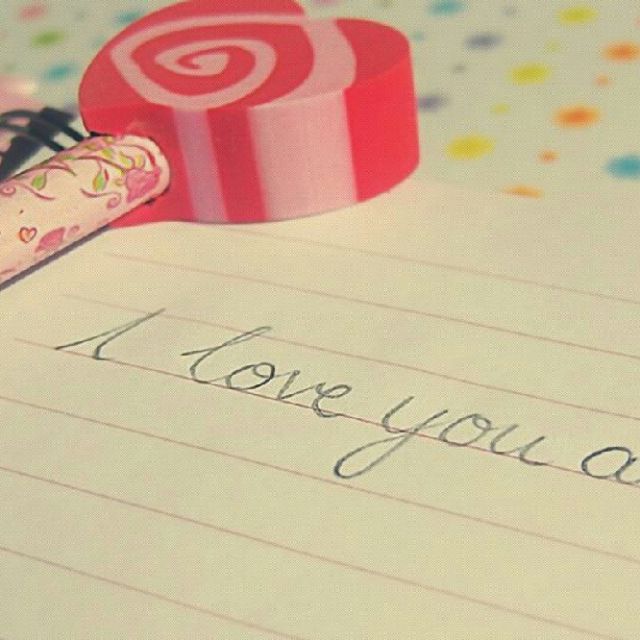 I love you a